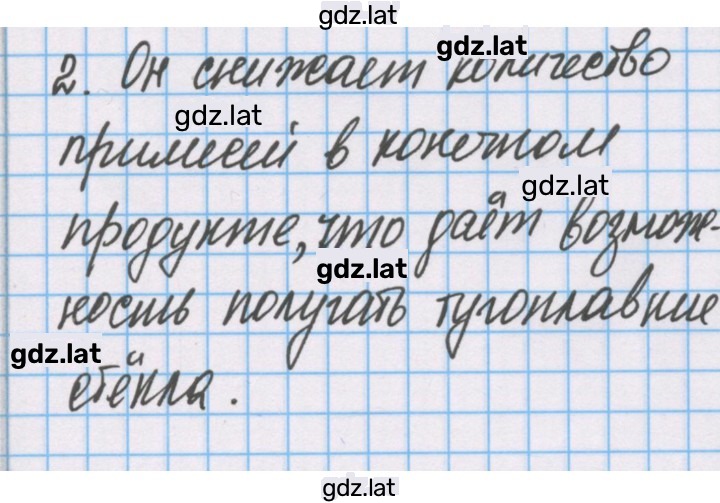 gdz.lat
gdz.lat
2. Он снижает количество
gdz.lat
примесей в конечном
gdz.lat
продукте, что даёт возмож-
gdz.lat
ность получать тугоплавкие
gdz.lat
стёкла.
gdz.lat